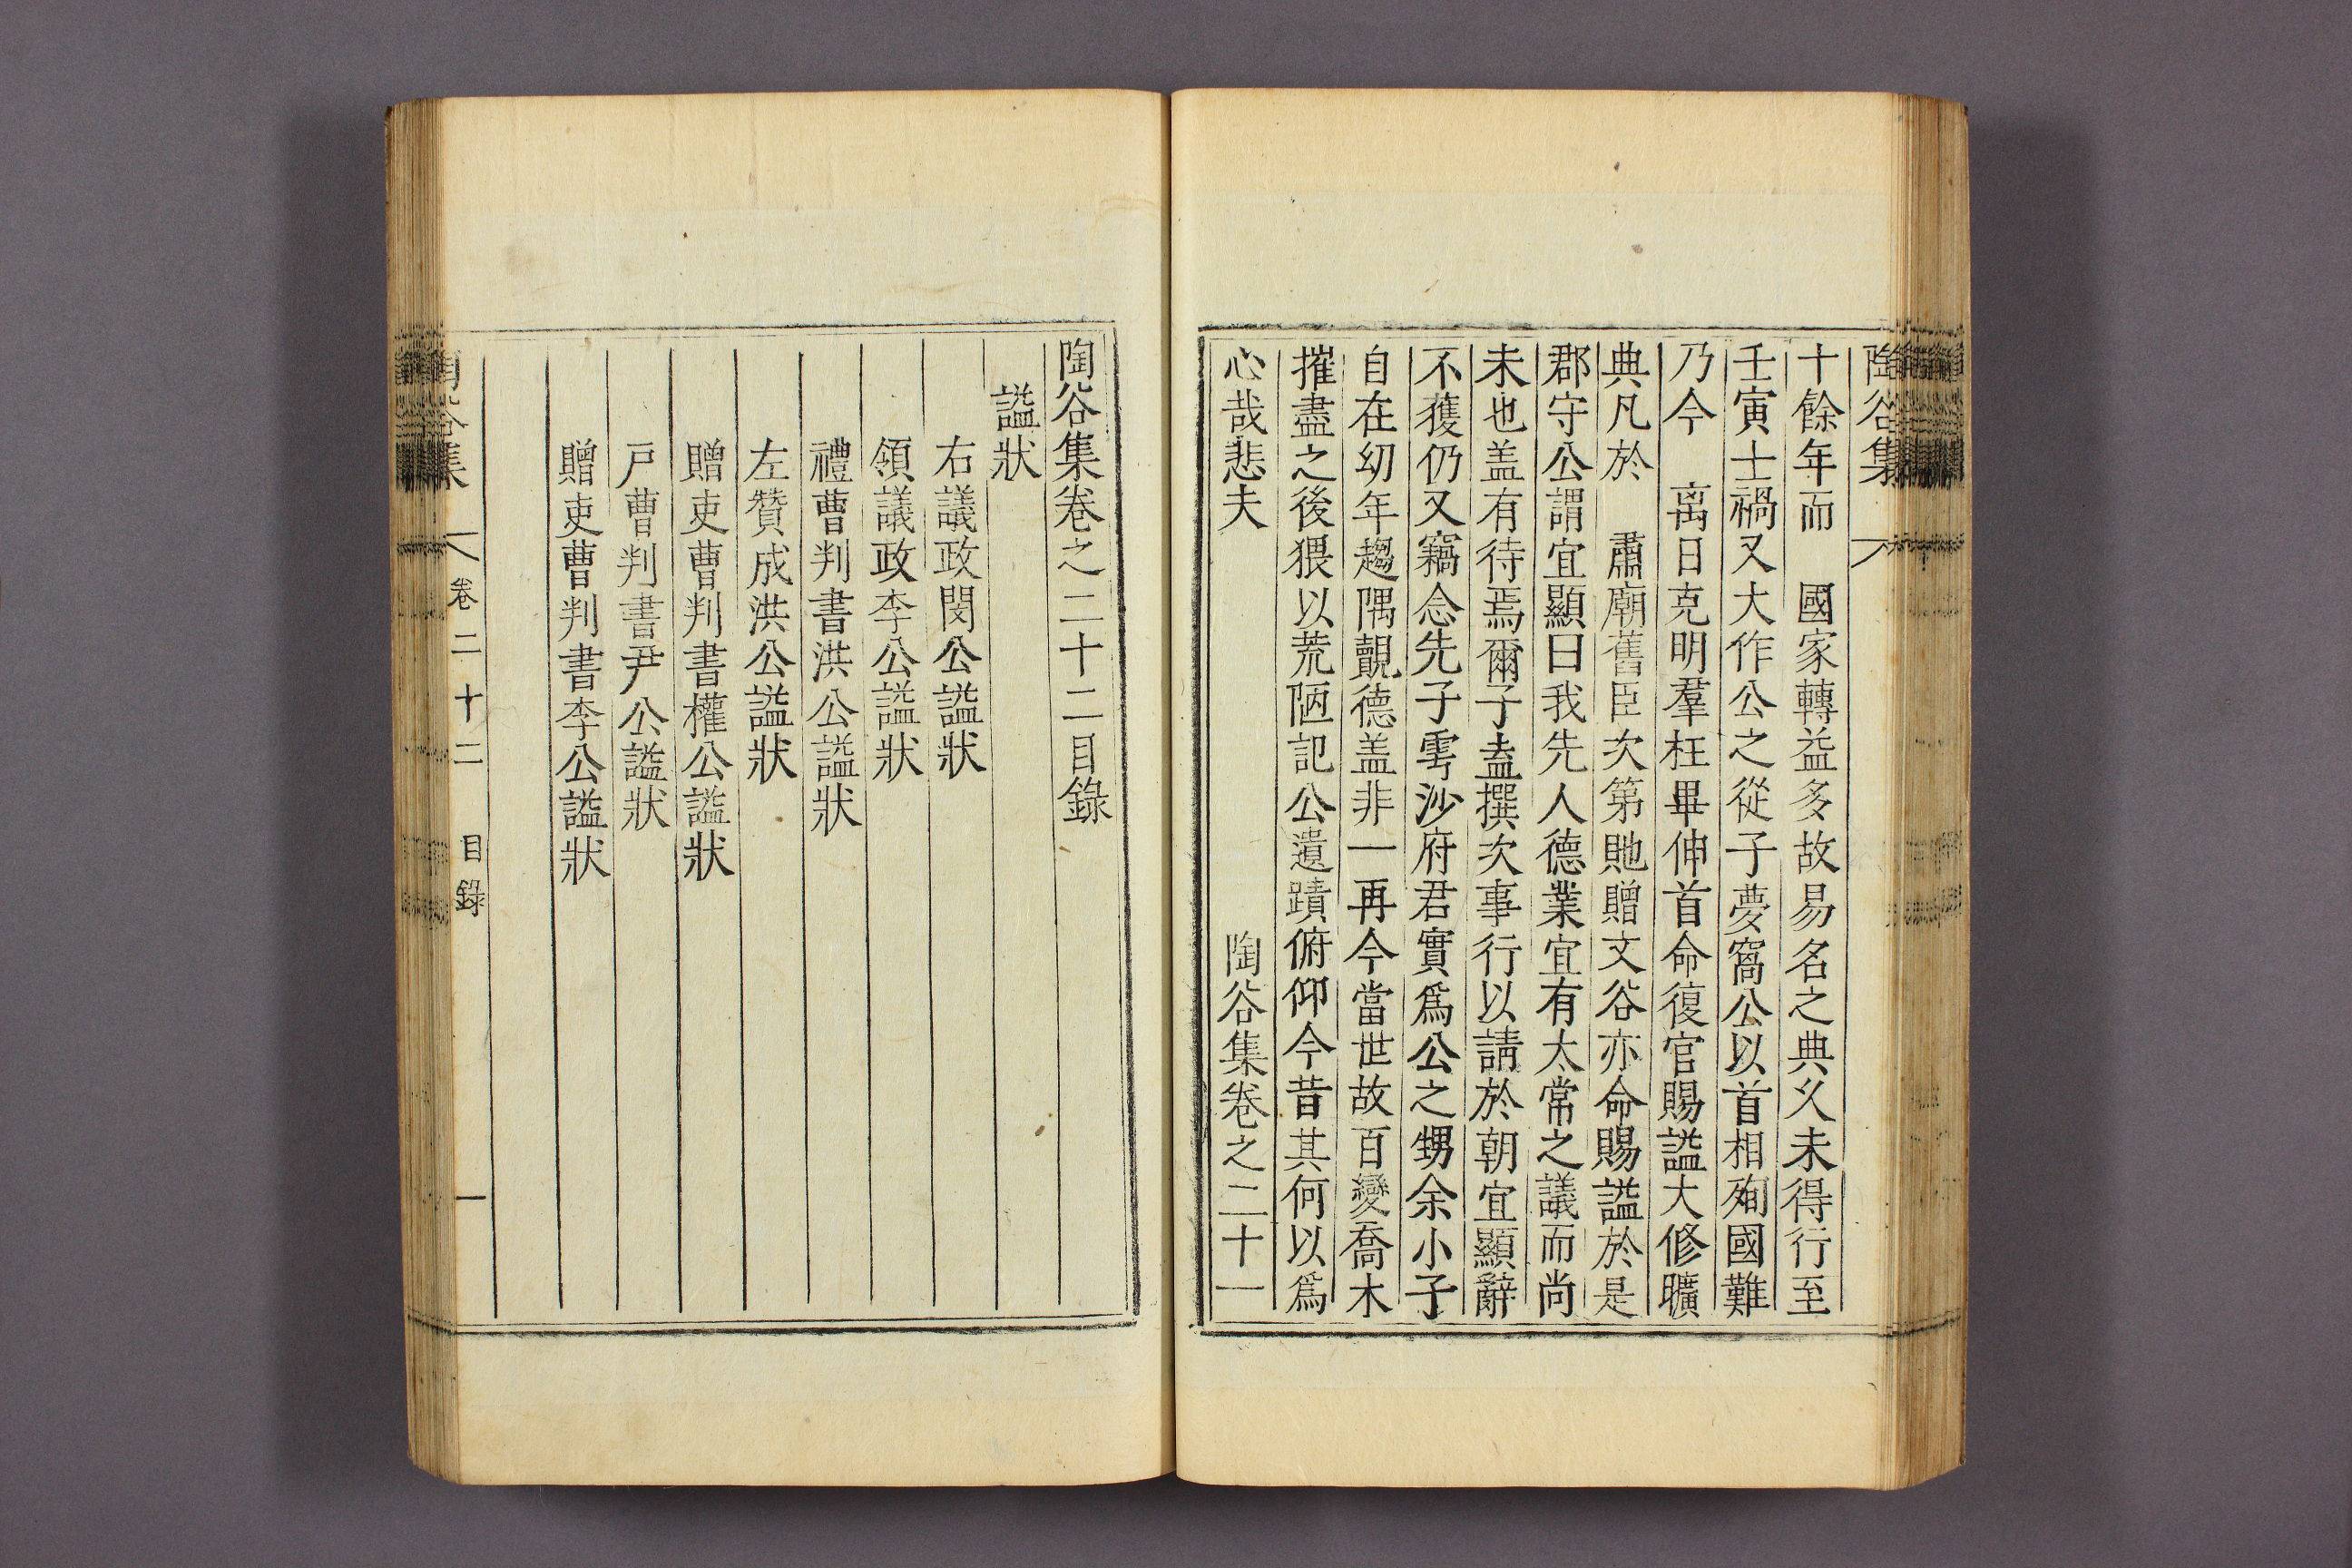 陶谷集
十餘年而 國家轉益多故易名之典久未得行至
壬寅士禍又大作公之從子夢窩公以首相殉國難
乃今 离日克明羣枉畢伸首命復官賜謚大修曠
典凡於 肅廟舊臣次第貤贈文谷亦命賜謚於是
郡守公謂宜顯曰我先人德業宜有太常之議而尚
未也盖有待焉爾子盍撰次事行以請於朝宜顯辭
不獲仍又竊念先子雩沙府君實爲公之甥余小子
自在幼年趨隅覿德盖非一再今當世故百變喬木
摧盡之後猥以荒陋記公遺蹟俯仰今昔其何以爲
心哉悲夫
陶谷集卷之二十一
陶谷集卷之二十二目錄
謚狀
右議政閔公謚狀
領議政李公謚狀
禮曹判書洪公謚狀
左贊成洪公謚狀
贈吏曹判書權公謚狀
戶曹判書尹公謚狀
贈吏曹判書李公謚狀
陶谷集 卷二十二 目錄 一